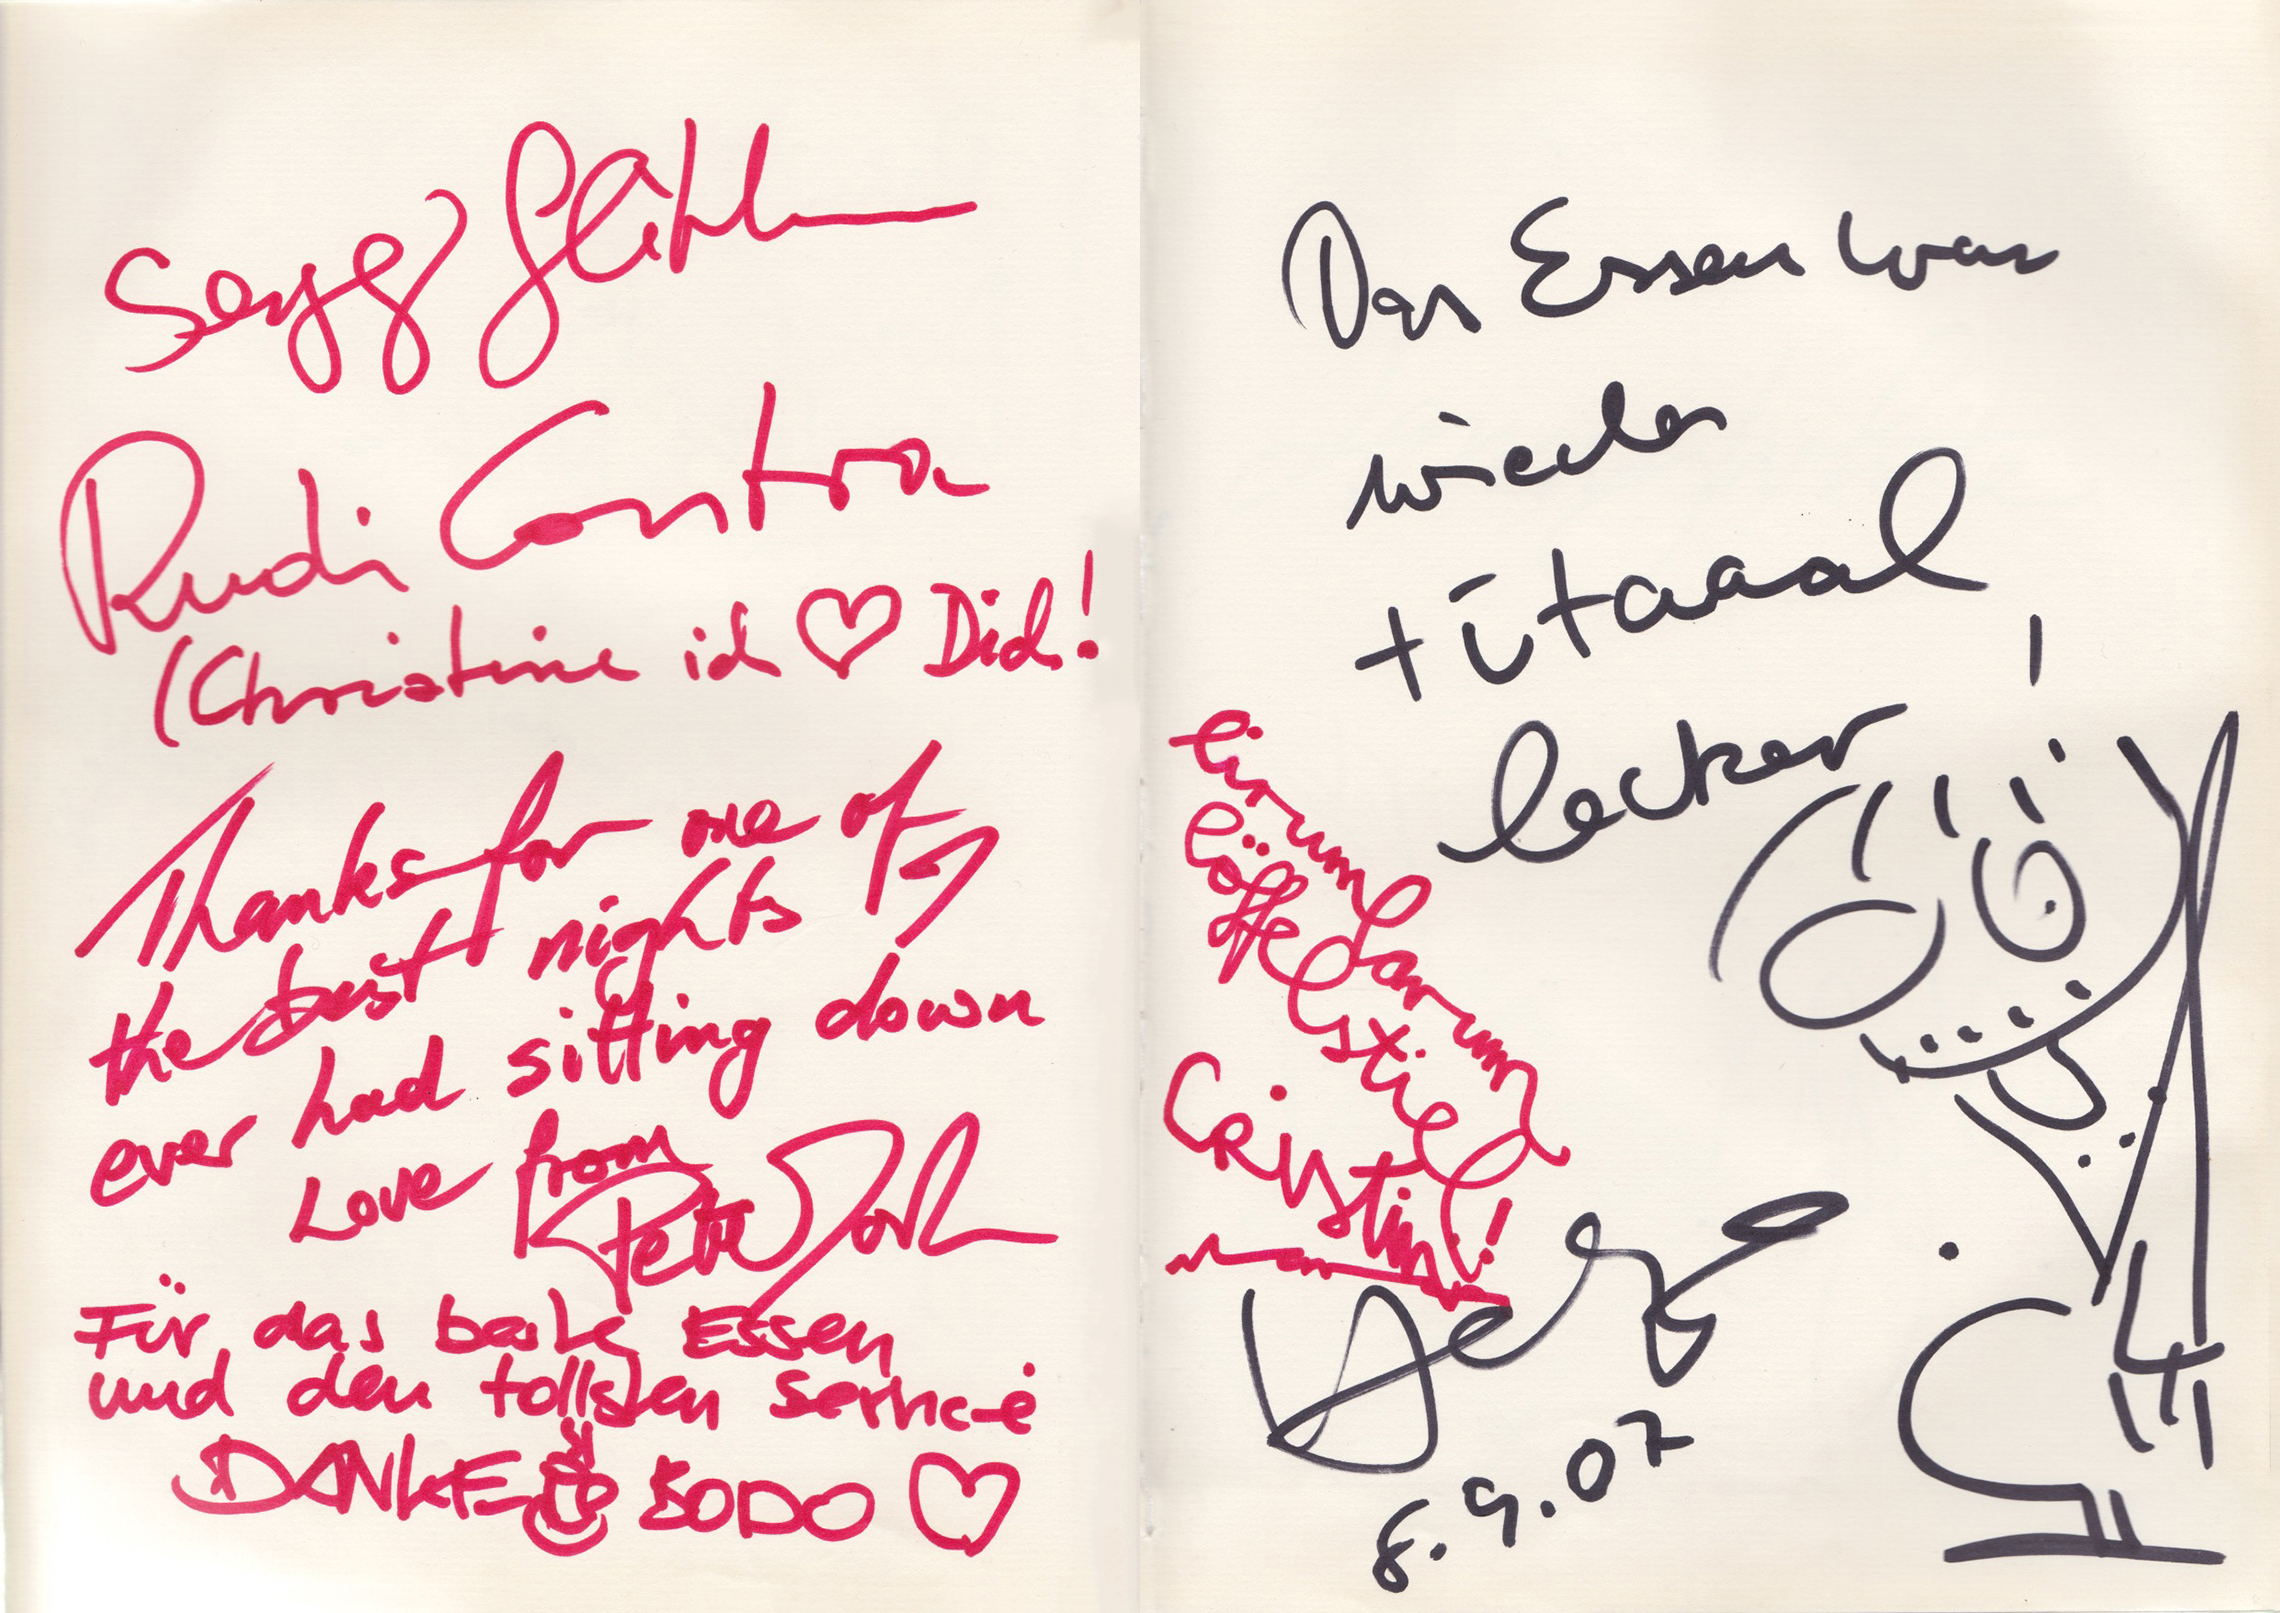 Rudi Contra
(Christine ich ♡ Dich!
Thanks for one of
the best nights I
ever had sitting down
Love from
Für das beste Essen
und den tollsten Service
DANKE BODO ♡
Das Essen war
wieder
tütaaal
lecker!
Löffelstiel!
Cristin
8.9.07